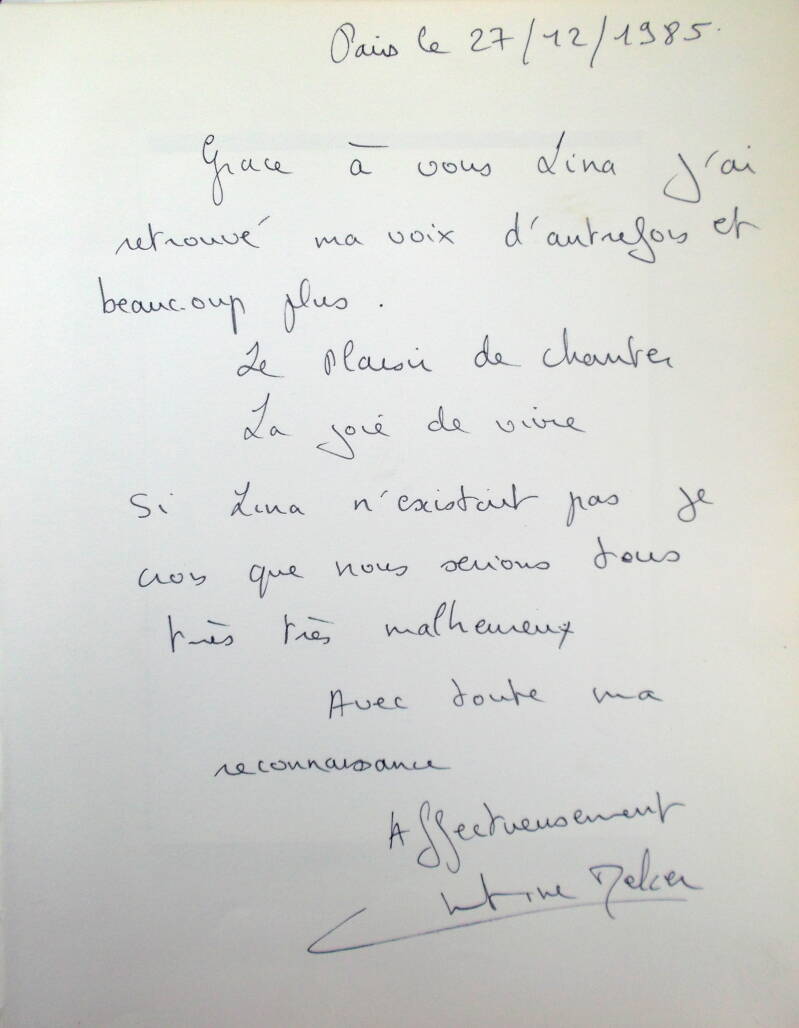 Paris le 27/12/1985.
Grace à vous Lina j'ai
retrouvé ma voix d'autrefois et
beaucoup plus.
Le plaisir de chanter
La joie de vivre
Si Lina n'existait pas je
crois que nous serions tous
très très malheureux
Avec toute ma
reconnaissance
Affectueusement